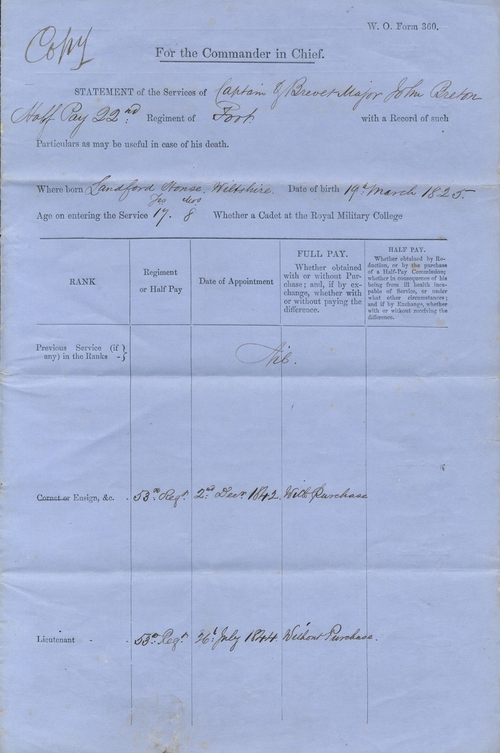 W. O. Form 360.
Copy
For the Commander in Chief.
STATEMENT of the Services of Captain & Brevet Major John Breton
Half Pay 22nd Regiment of Foot with a Record of such
Particulars as may be useful in case of his death.
Where born Landford House, Wiltshire. Date of birth 19th March 1825.
yrs mos
Age on entering the Service 17. 8 Whether a Cadet at the Royal Military College
RANK
Regiment
or Half Pay
Date of Appointment
FULL PAY.
Whether obtained
with or without Pur-
chase; and, if by ex-
change, whether with
or without paying the
difference.
HALF PAY.
Whether obtained by Re-
duction, or by the purchase
of a Half-Pay Commission;
whether in consequence of his
being from ill health inca-
pable of Service, or under
what other circumstances;
and if by Exchange, whether
with or without receiving the
difference.
Previous Service (if
any) in the Ranks -
Nil.
Cornet or Ensign, &c. - 53rd Regt. 2nd Decr 1842 With Purchase
Lieutenant - 53rd Regt. 26t July 1844 Without Purchase.